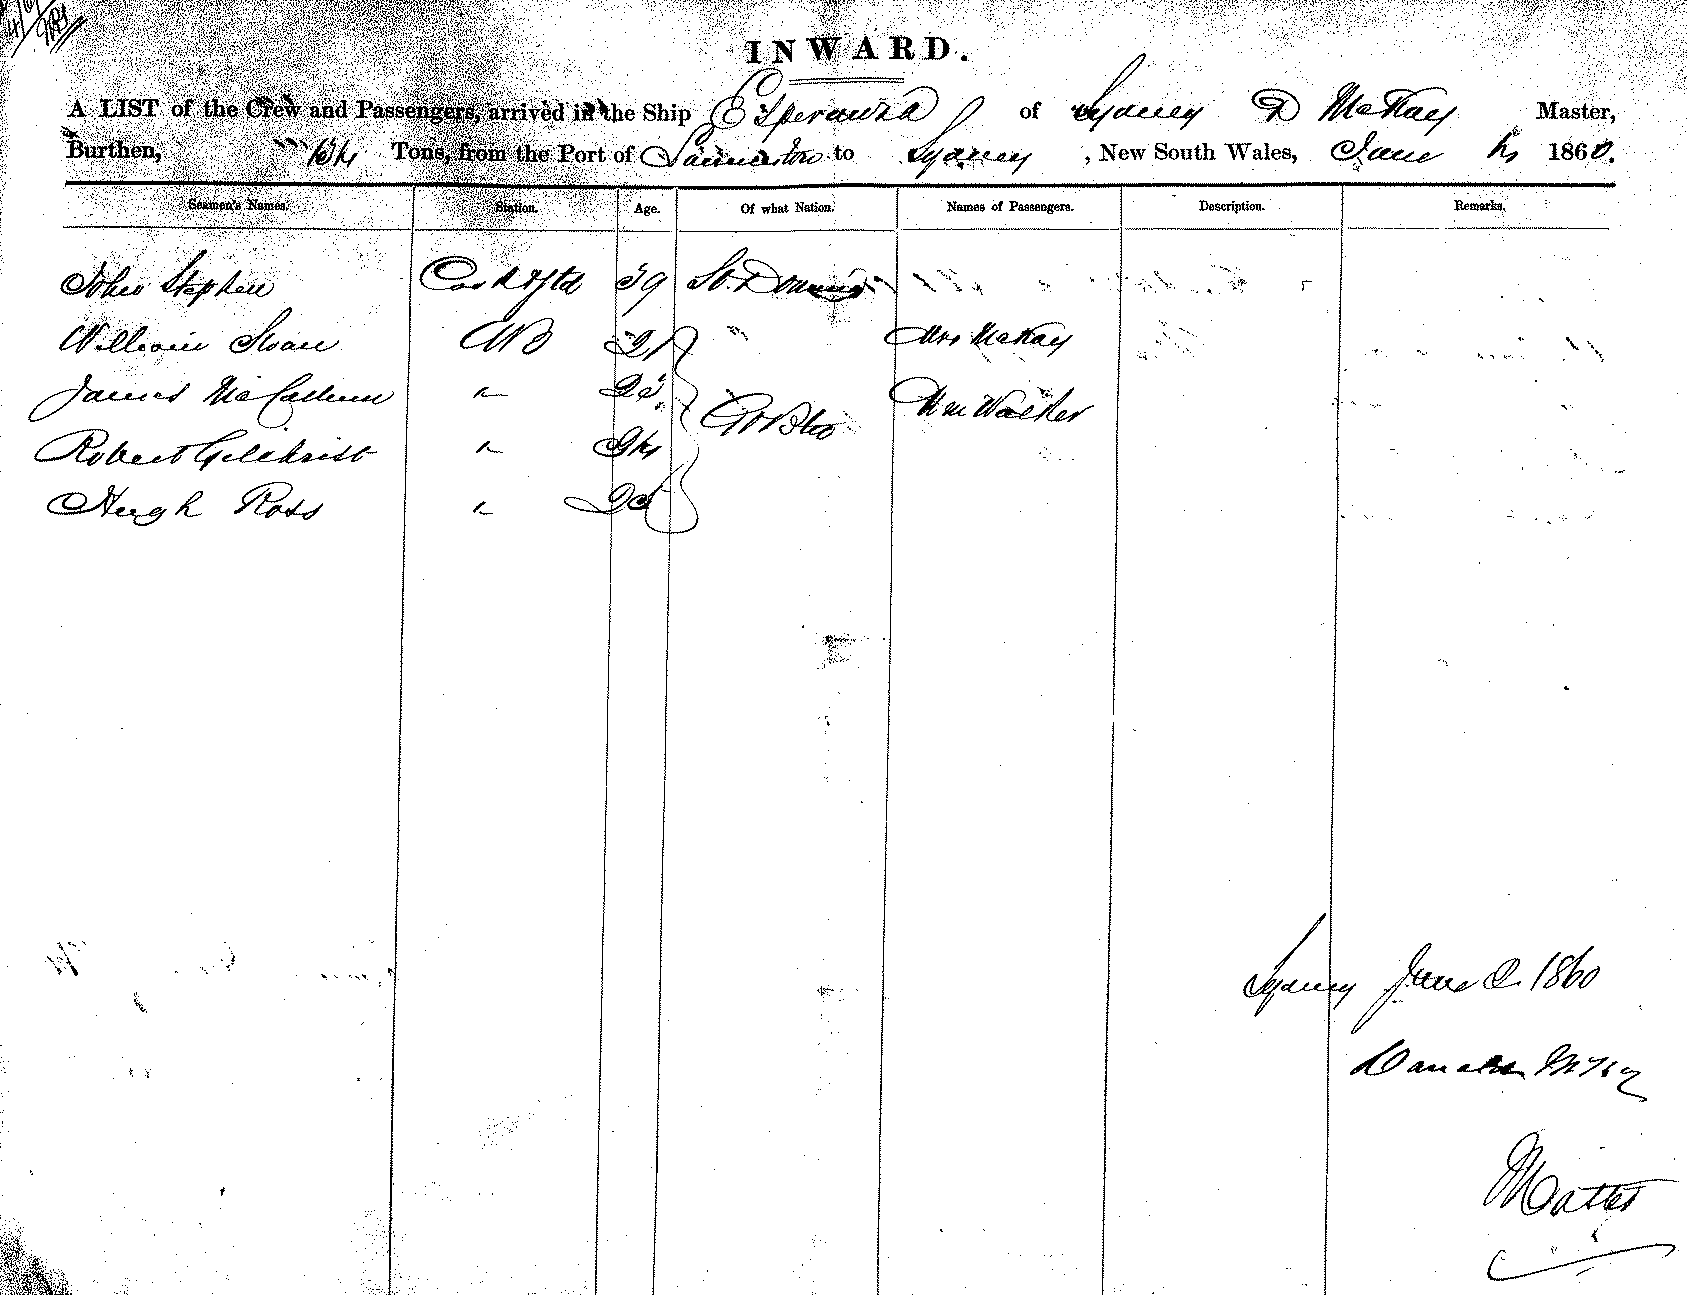 INWARD.
A LIST of the Crew and Passengers, arrived in the Ship Esperanza of Sydney D McKay Master,
Burthen, Tons, from the Port of Launceston to Sydney , New South Wales, June 1860.
Seamen's Names. Station. Age. Of what Nation. Names of Passengers. Description. Remarks.
John Stephen Cook & Std 39 St. Domingo
William Sloan AB 21 " Mrs McKay
James McCallum " Wm Walker
Robert Gilchrist " Gt Btn
Hugh Ross "
Sydney June 2. 1860
Donald McKay
Master